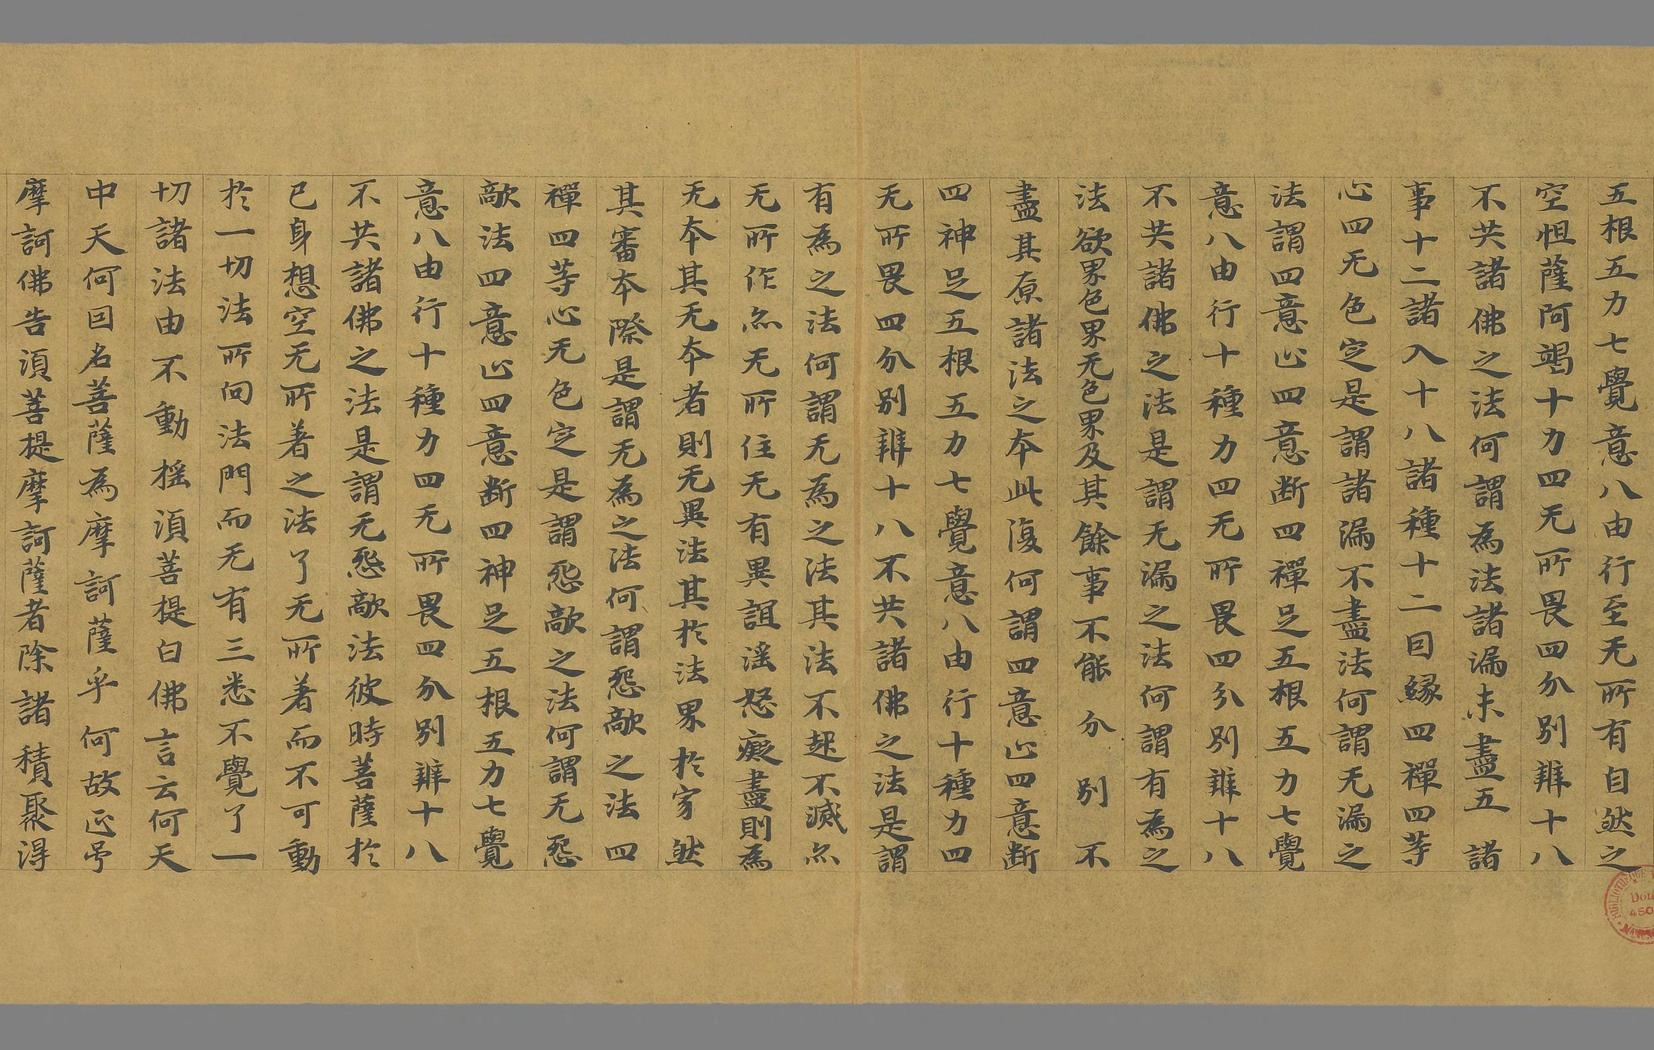 五根五力七覺意八由行至无所有自然之
空怛薩阿竭十力四无所畏四分別辯十八
不共諸佛之法何謂為法諸漏未盡五諸
事十二諸入十八諸種十二因緣四禪四等
心四无色定是謂諸漏不盡法何謂无漏之
法謂四意止四意断四禪足五根五力七覺
意八由行十種力四无所畏四分別辯十八
不共諸佛之法是謂无漏之法何謂有為之
法欲界色界无色界及其餘事不能分別不
盡其原諸法之本此復何謂四意止四意断
四神足五根五力七覺意八由行十種力四
无所畏四分別辯十八不共諸佛之法是謂
有為之法何謂无為之法其法不起不滅亦
无所作亦无所住无有異誼滛怒癡盡則為
无本其无本者則无異法其於法界於家然
其審本際是謂无為之法何謂怨敵之法四
禪四等心无色定是謂怨敵之法何謂无怨
敵法四意止四意断四神足五根五力七覺
意八由行十種力四无所畏四分別辯十八
不共諸佛之法是謂无怨敵法彼時菩薩於
已身想空无所著之法了无所著而不可動
於一切法所问法門而无有三悉不覺了一
切諸法由不動搖湏菩提白佛言云何天
中天何因名菩薩為摩訶薩乎何故正号
摩訶佛告湏菩提摩訶薩者除諸積聚得